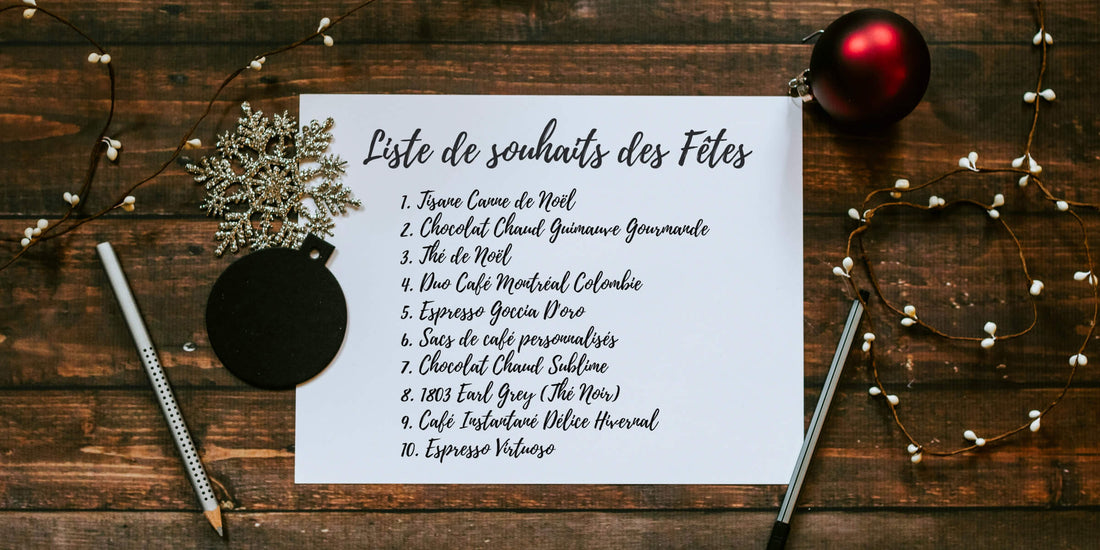 Liste de souhaits des Fêtes
1. Tisane Canne de Noël
2. Chocolat Chaud Guimauve Gourmande
3. Thé de Noël
4. Duo Café Montréal Colombie
5. Espresso Goccia D'oro
6. Sacs de café personnalisés
7. Chocolat Chaud Sublime
8. 1803 Earl Grey (Thé Noir)
9. Café Instantané Délice Hivernal
10. Espresso Virtuoso